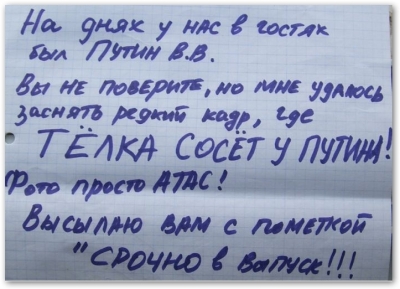 На днях у нас в гостях
был Путин В.В.
Вы не поверите, но мне удалось
заснять редкий кадр, где
ТЁЛКА СОСЁТ У ПУТИНА!
Фото просто АТАС!
Высылаю вам с пометкой
"СРОЧНО в выпуск!!!